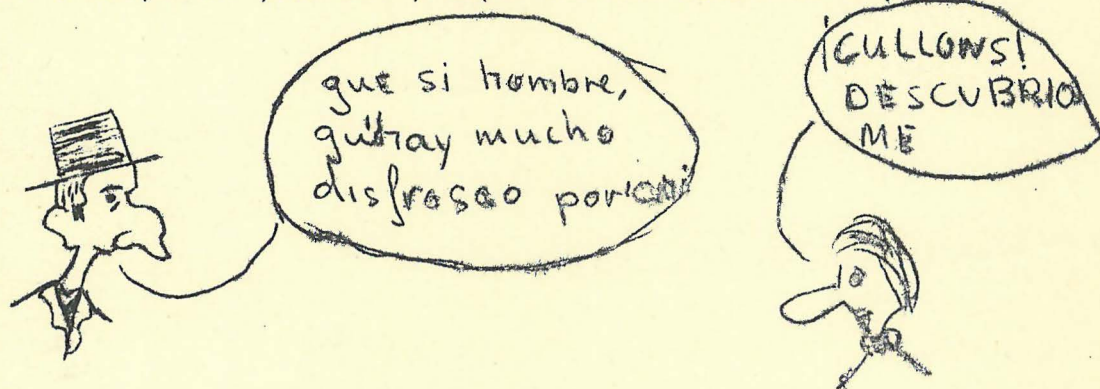 que si hombre,
qu'hay mucho
disfrosao por'ahi
¡CULLONS!
DESCUBRIO
ME